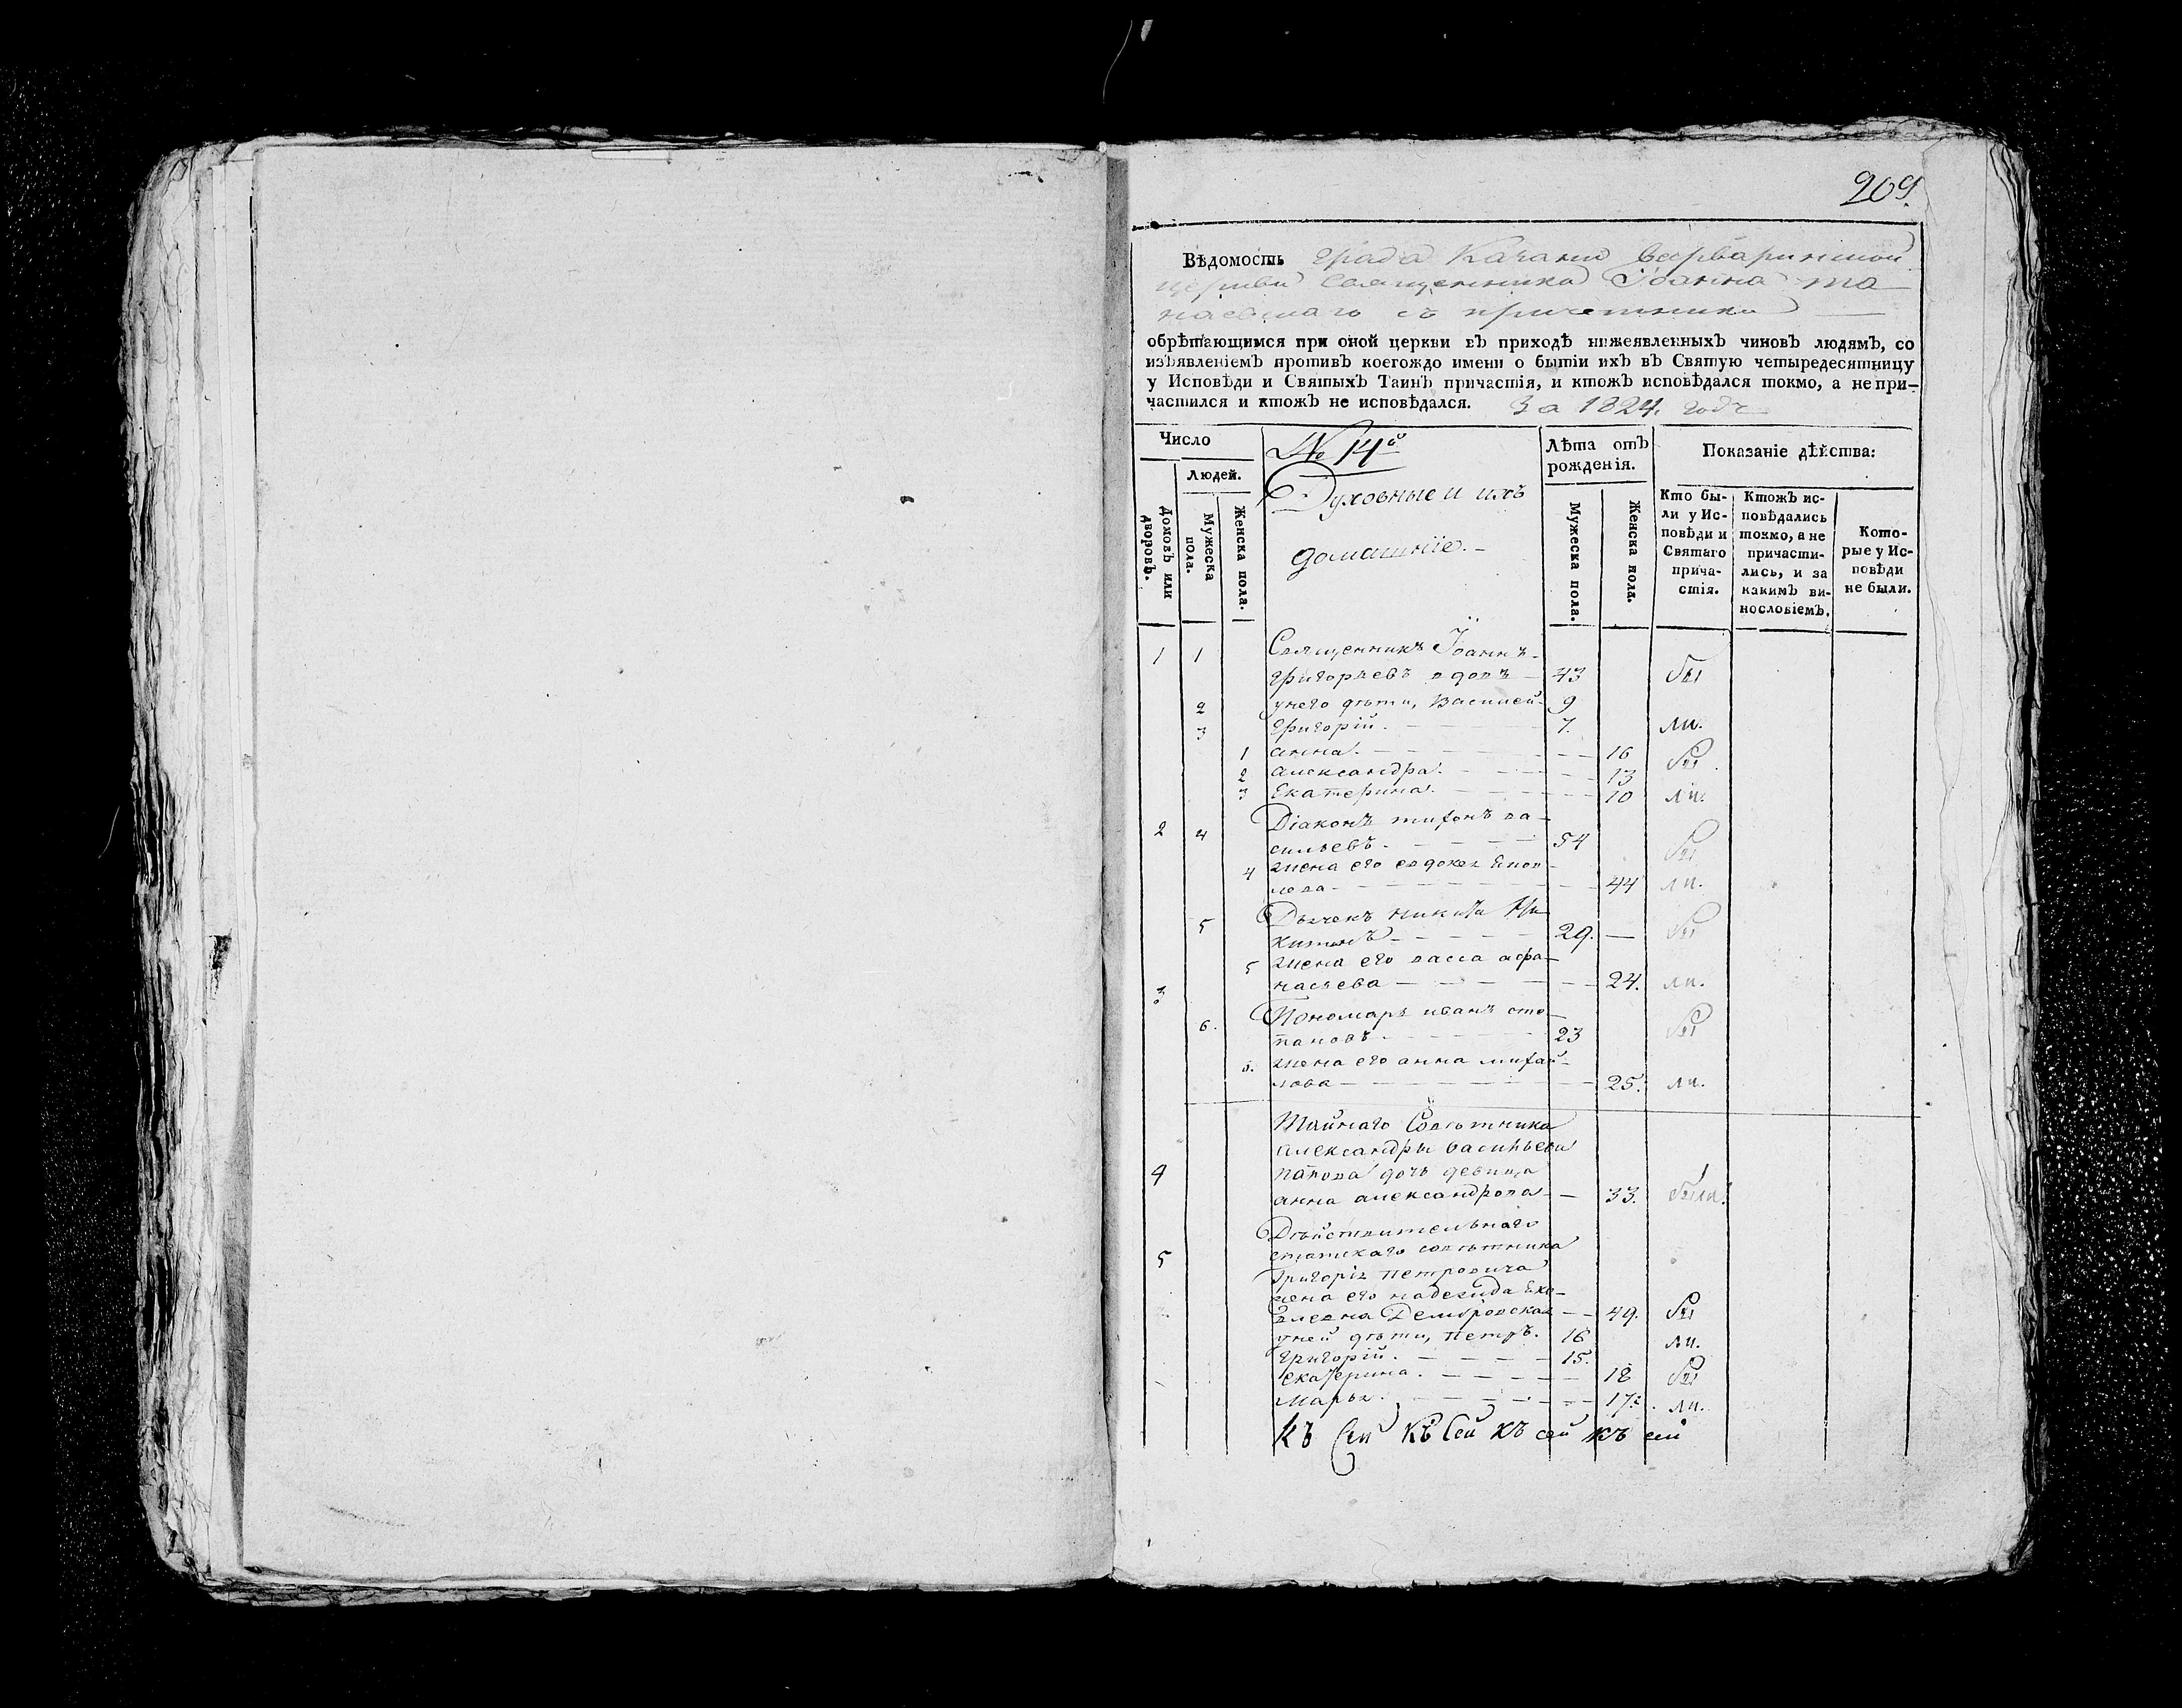 209.
Вѣдомость града Казани Варваринской
церкви Священника Іоанна
съ причетники
обрѣтающимся при оной церкви въ приходѣ нижеявленныхъ чиновъ людямъ, со
изъявленіемъ противъ коегождо имени о бытіи ихъ въ Святую четыредесятницу
у Исповѣди и Святыхъ Таинъ причастія, и ктожъ исповѣдался токмо, а не при-
частился и ктожъ не исповѣдался. За 1824. годъ
Число
Людей.
Домовъ или дворовъ.
Мужеска пола.
Женска пола.
№ 14й
Духовные и ихъ
домашніе.
Лѣта отъ рожденія.
Мужеска пола.
Женска пола.
Показаніе дѣйства:
Кто бы-
ли у Ис-
повѣди и
Святаго
прича-
стія.
Ктожъ ис-
повѣдались
токмо, а не
причасти-
лись, и за
какимъ ви-
нословіемъ.
Кото-
рые у Ис-
повѣди
не были.
1 1 Священникъ Іоаннъ
Григорьевъ вдовъ 43 бы
2 у него дѣти, Василей 9
3 Григорій. 7. ли.
1 анна. 16 бы
2 александра. 13
3 Екатерина. 10 ли.
2 4 Діаконъ тихонъ ва-
сильевъ. 54 бы
4 жена его евдокея
44 ли.
5 Дьячекъ никита Ни-
китинъ 29. бы
5 жена его васса афа-
насьева 24. ли.
3
6. Пономарь иванъ сте-
пановъ 23 бы
6. жена его анна михай-
лова 25. ли.
Тайнаго Советника
александры васильеви
4 попова дочь девица
анна александрова 33. была.
Дѣйствительнаго
5 статскаго советника
Григорія петровича
жена его надежда
49. бы
у ней дѣти, петръ. 16 ли.
григорій. 15.
екатерина. 18 бы
марья. 17. ли.
къ сей къ сей къ сей къ сей